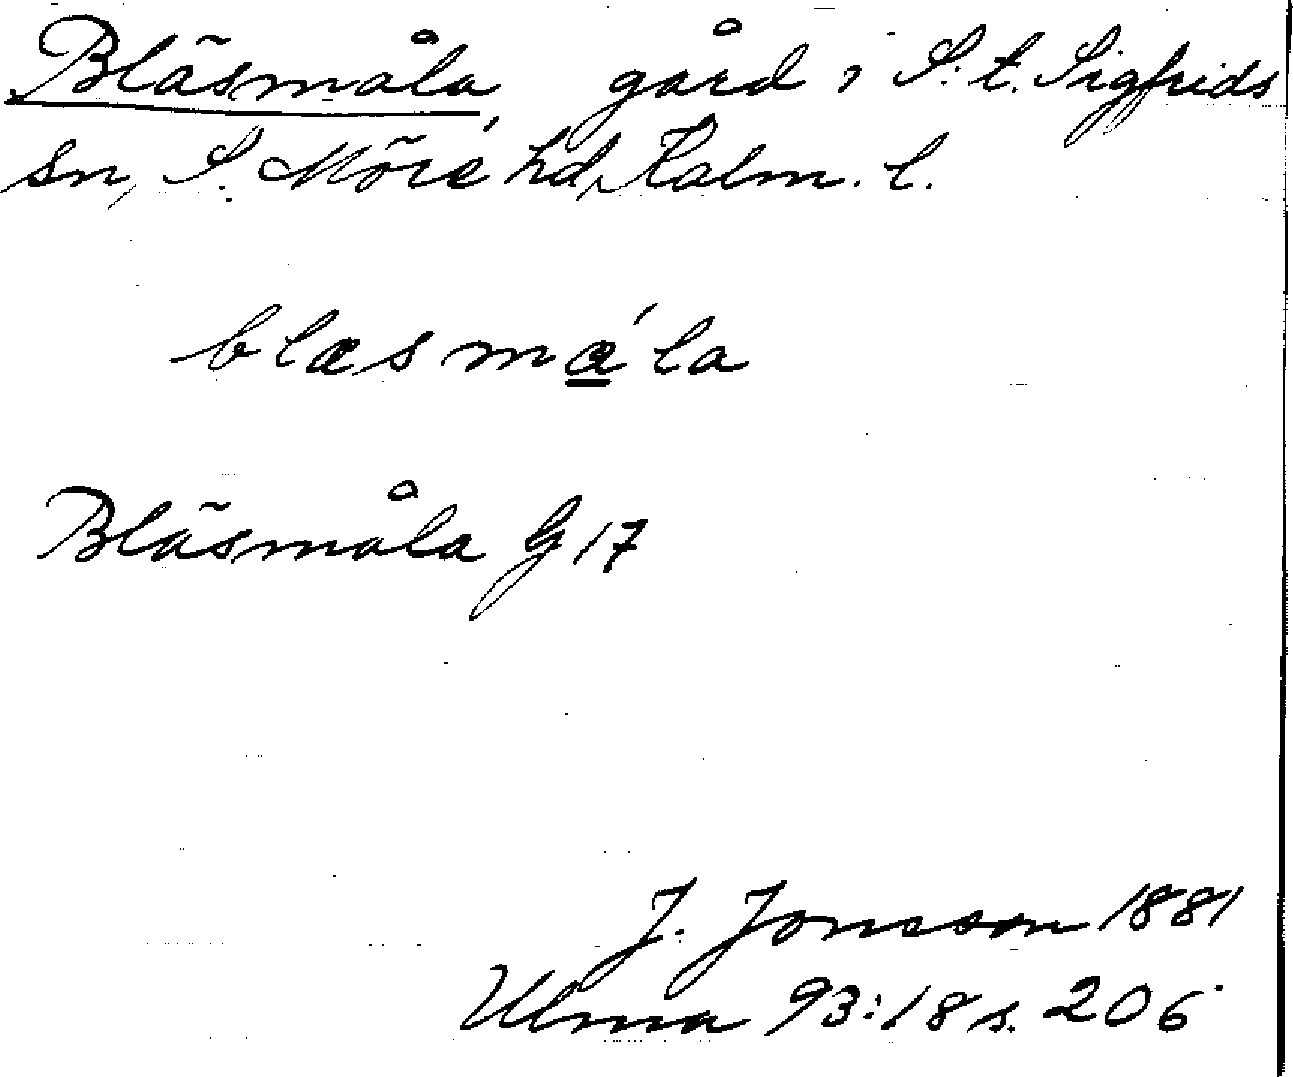 Bläsmåla, gård i S:t. Sigfrids
sn, S. Möre hd, Kalm. l.
blæsmá̲la
Bläsmåla G 17
J. Jonsson 1881
Ulma 93:18 s. 206